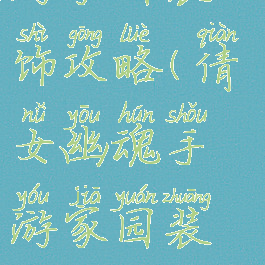 shì gōng lüè qiàn
饰攻略(倩
nǚ yōu hún shǒu
女幽魂手
yóu jiā yuán zhuāng
游家园装